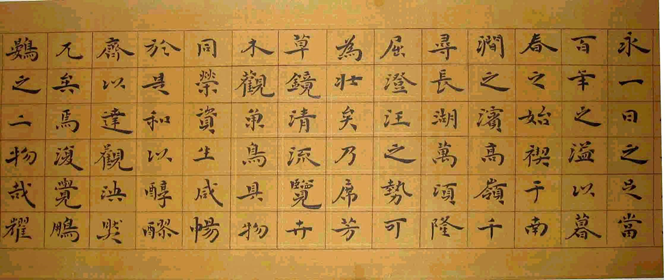 永一日之足當
百年之溢以暮
春之始禊于南
澗之濱高嶺千
尋長湖萬頃隆
屈澄汪之勢可
為壯矣乃席芳
草鏡清流覽卉
木觀魚鳥具物
同榮資生咸暢
於是和以醇醪
齊以達觀決然
兀矣焉復覺鵬
鷃之二物哉耀